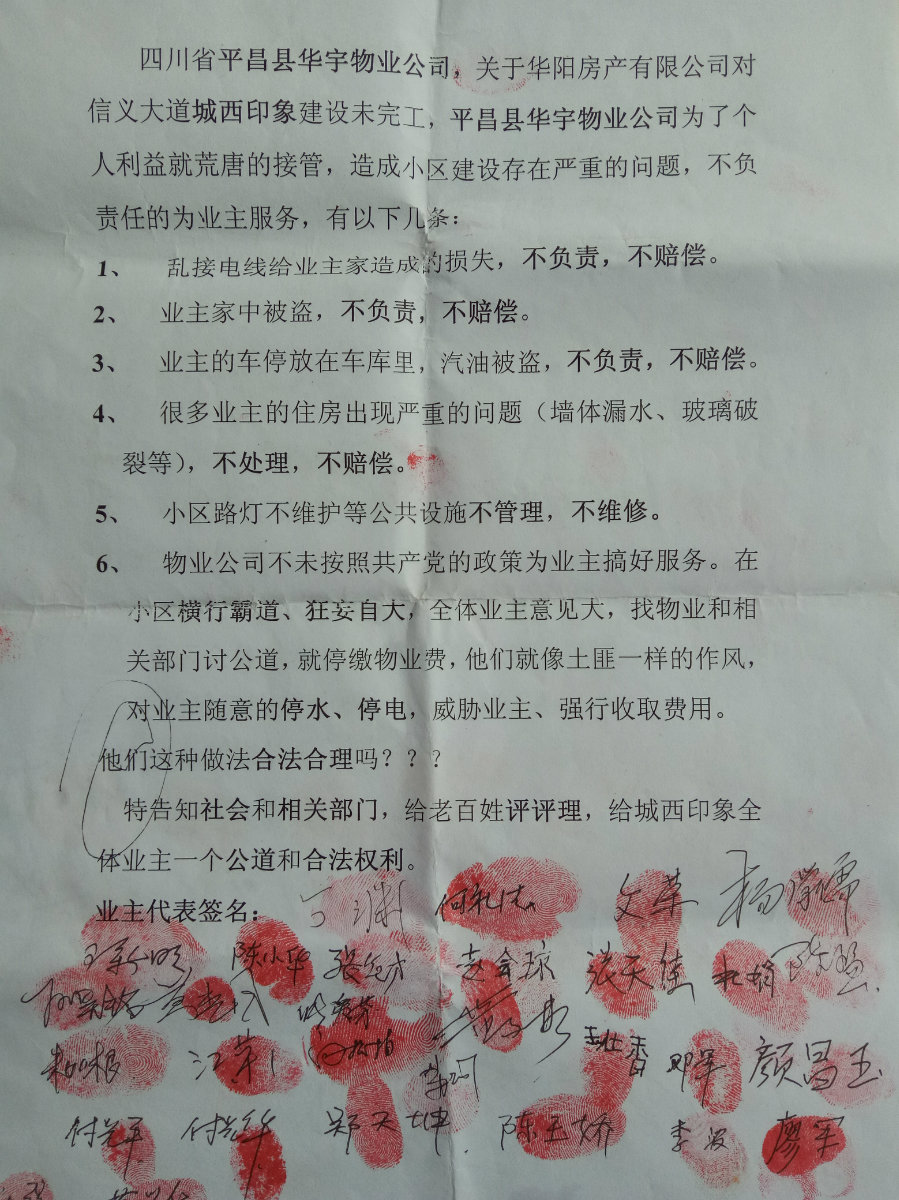 四川省平昌县华宇物业公司，关于华阳房产有限公司对
信义大道城西印象建设未完工，平昌县华宇物业公司为了个
人利益就荒唐的接管，造成小区建设存在严重的问题，不负
责任的为业主服务，有以下几条：
1、 乱接电线给业主家造成的损失，不负责，不赔偿。
2、 业主家中被盗，不负责，不赔偿。
3、 业主的车停放在车库里，汽油被盗，不负责，不赔偿。
4、 很多业主的住房出现严重的问题（墙体漏水、玻璃破
裂等），不处理，不赔偿。
5、 小区路灯不维护等公共设施不管理，不维修。
6、 物业公司不未按照共产党的政策为业主搞好服务。在
小区横行霸道、狂妄自大，全体业主意见大，找物业和相
关部门讨公道，就停缴物业费，他们就像土匪一样的作风，
对业主随意的停水、停电，威胁业主、强行收取费用。
他们这种做法合法合理吗？？？
特告知社会和相关部门，给老百姓评评理，给城西印象全
体业主一个公道和合法权利。
业主代表签名： 文革
陈小华 赵会琼 张天佳
邓军 颜昌玉
郑天坤 陈玉娇 李波 廖军